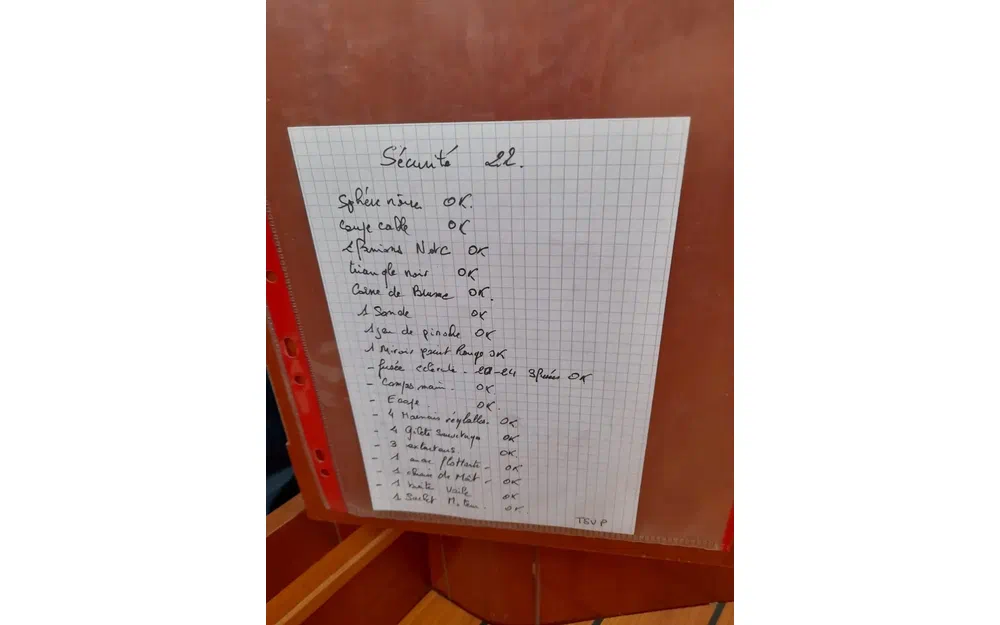 Sécurité 22.
Sphère noire OK.
coupe cable OK
2 fanions N et C OK
triangle noir OK
Corne de Brume OK.
1 Sonde OK
1 jeu de pinoche OK
1 Miroir point Rouge OK
- fusée - 24 OK
- Compas main. OK
- Ecope. OK.
- 4 Harnais réglables. OK
- 4 Gilets Sauvetage OK
- 3 extincteurs. OK
- 1 ancre flottante - OK
- 1 chaise de Mât - OK
- 1 Voile OK
1 Moteur. OK.
TSVP